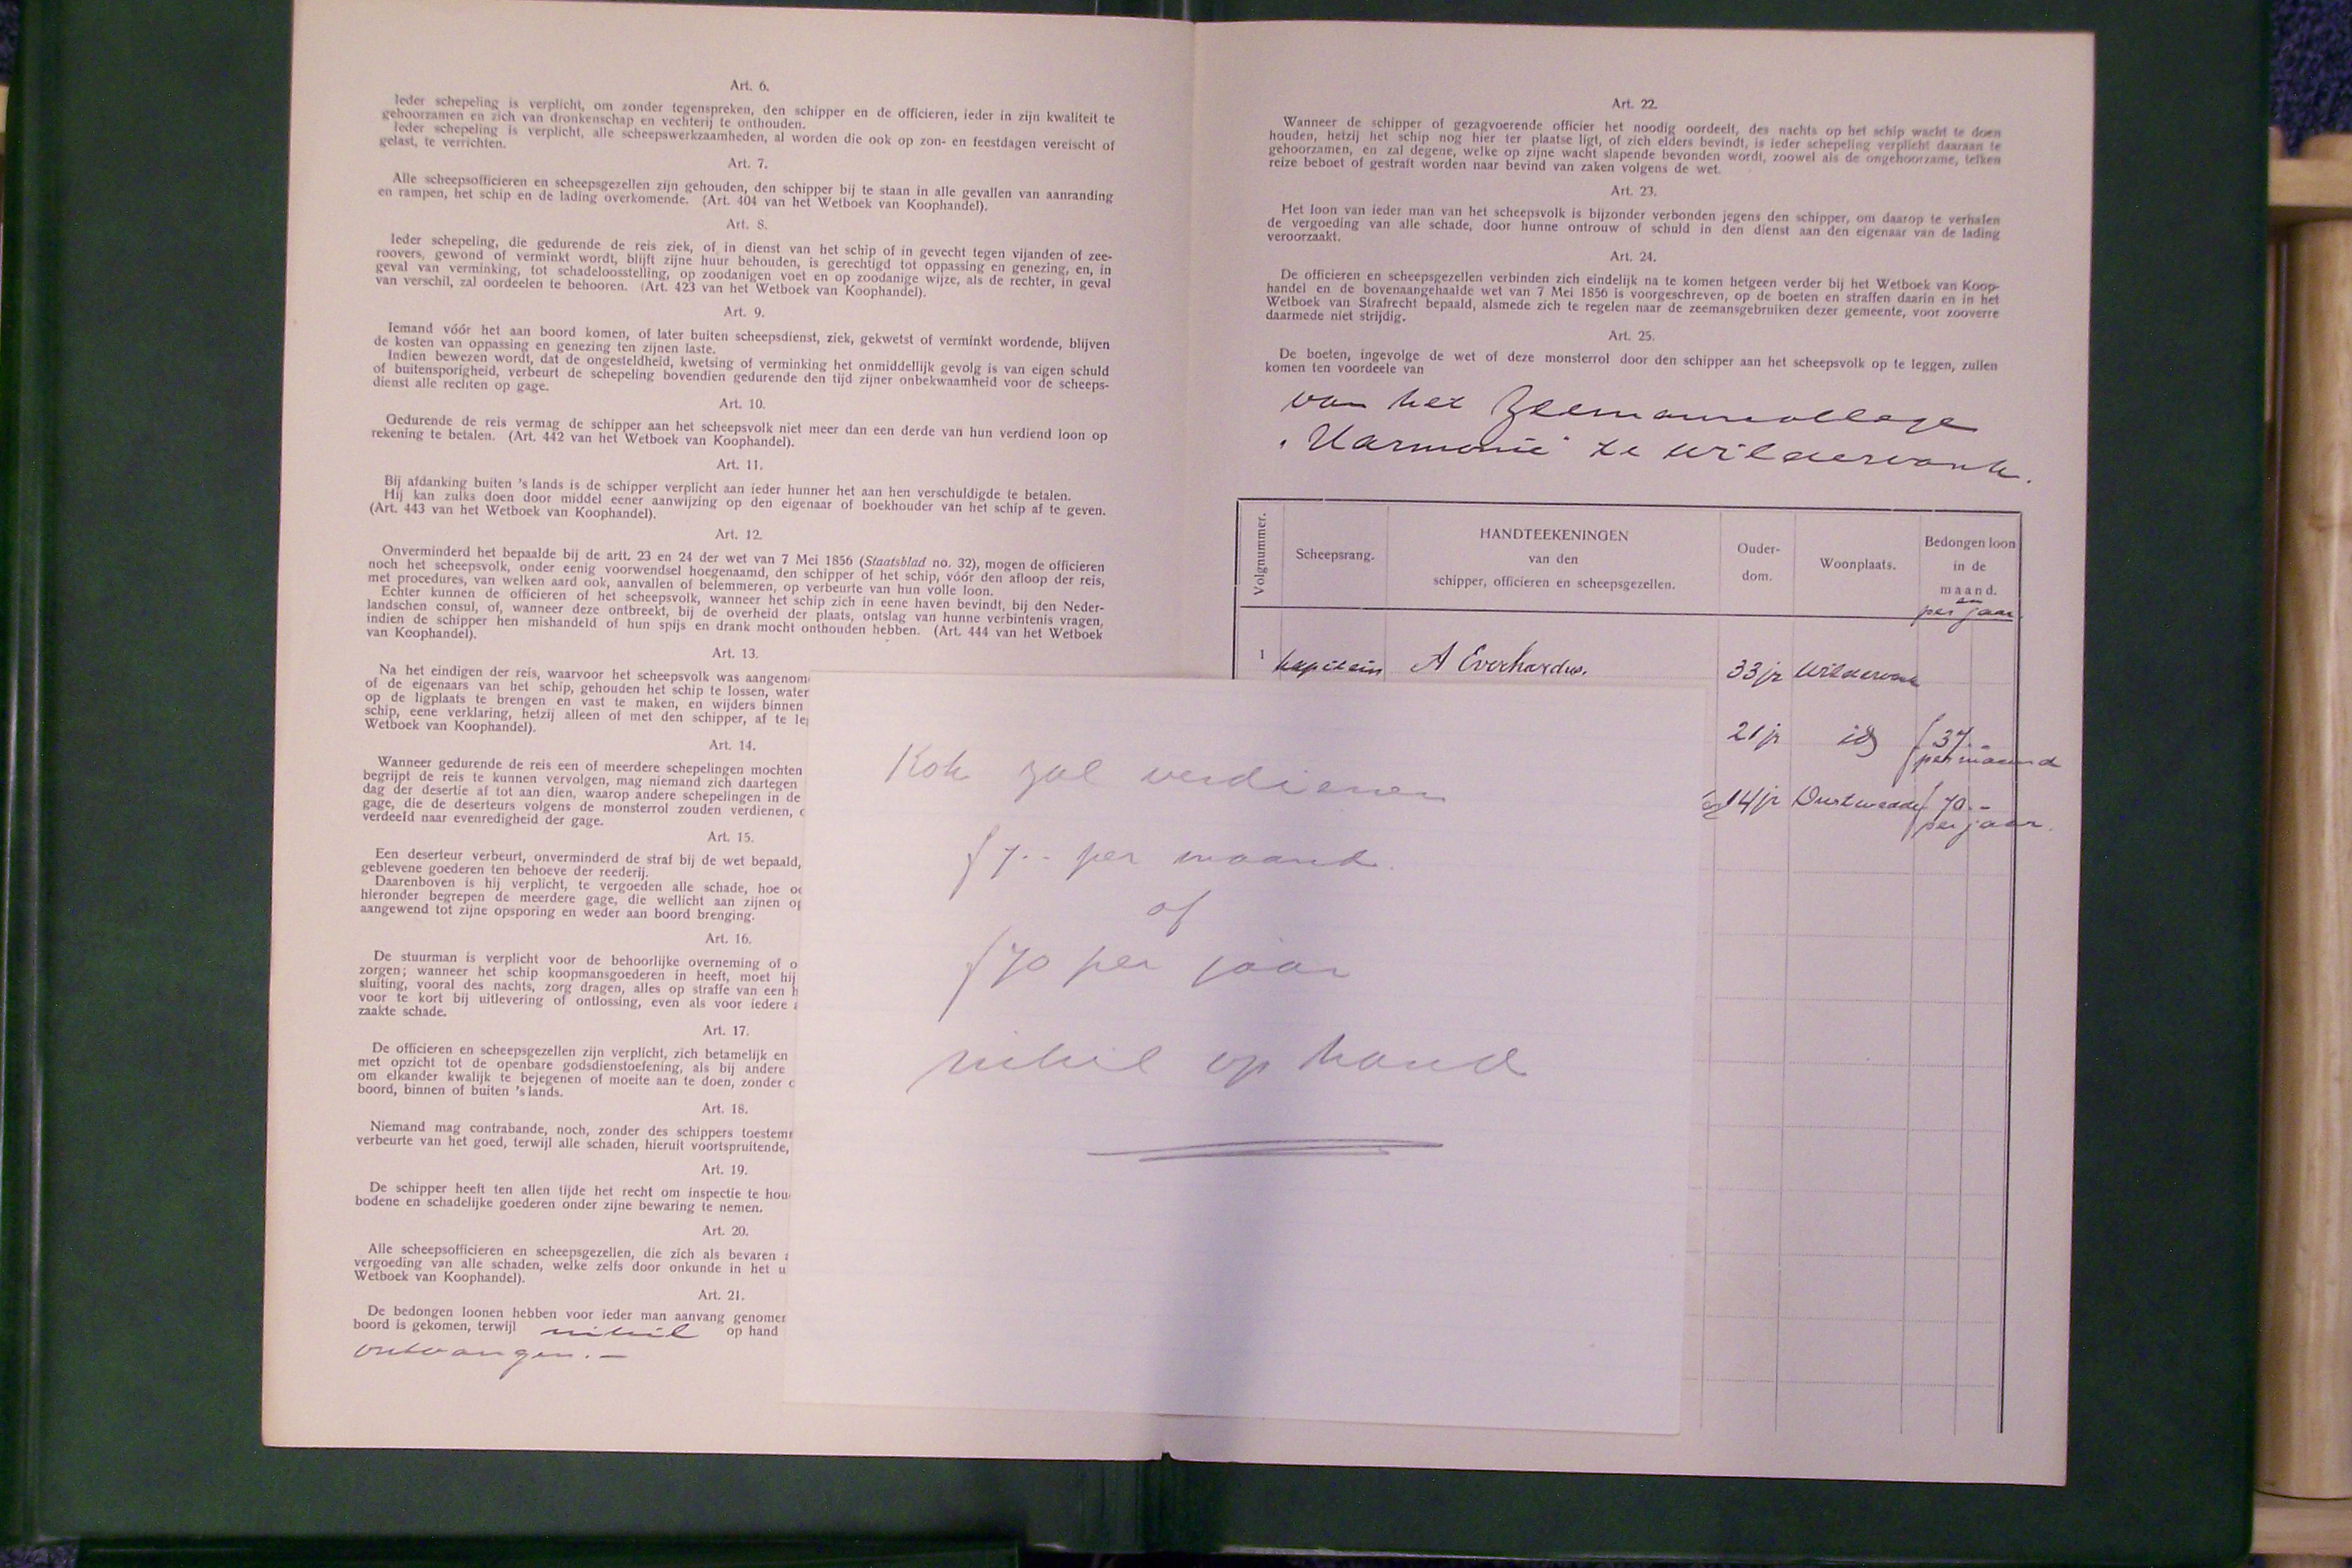 Art. 6.
Ieder schepeling is verplicht, om zonder tegenspreken, den schipper en de officieren, ieder in zijn kwaliteit te
gehoorzamen en zich van dronkenschap en vechterij te onthouden.
Ieder schepeling is verplicht, alle scheepswerkzaamheden, al worden die ook op zon- en feestdagen vereischt of
gelast, te verrichten.
Art. 7.
Alle scheepsofficieren en scheepsgezellen zijn gehouden, den schipper bij te staan in alle gevallen van aanranding
en rampen, het schip en de lading overkomende. (Art. 404 van het Wetboek van Koophandel).
Art. 8.
Ieder schepeling, die gedurende de reis ziek, of in dienst van het schip of in gevecht tegen vijanden of zee-
roovers, gewond of verminkt wordt, blijft zijne huur behouden, is gerechtigd tot oppassing en genezing, en, in
geval van verminking, tot schadeloosstelling, op zoodanigen voet en op zoodanige wijze, als de rechter, in geval
van verschil, zal oordeelen te behooren. (Art. 423 van het Wetboek van Koophandel).
Art. 9.
Iemand vóór het aan boord komen, of later buiten scheepsdienst, ziek, gekwetst of verminkt wordende, blijven
de kosten van oppassing en genezing ten zijnen laste.
Indien bewezen wordt, dat de ongesteldheid, kwetsing of verminking het onmiddellijk gevolg is van eigen schuld
of buitensporigheid, verbeurt de schepeling bovendien gedurende den tijd zijner onbekwaamheid voor de scheeps-
dienst alle rechten op gage.
Art. 10.
Gedurende de reis vermag de schipper aan het scheepsvolk niet meer dan een derde van hun verdiend loon op
rekening te betalen. (Art. 442 van het Wetboek van Koophandel).
Art. 11.
Bij afdanking buiten 's lands is de schipper verplicht aan ieder hunner het aan hen verschuldigde te betalen.
Hij kan zulks doen door middel eener aanwijzing op den eigenaar of boekhouder van het schip af te geven.
(Art. 443 van het Wetboek van Koophandel).
Art. 12.
Onverminderd het bepaalde bij de artt. 23 en 24 der wet van 7 Mei 1856 (Staatsblad no. 32), mogen de officieren
noch het scheepsvolk, onder eenig voorwendsel hoegenaamd, den schipper of het schip, vóór den afloop der reis,
met procedures, van welken aard ook, aanvallen of belemmeren, op verbeurte van hun volle loon.
Echter kunnen de officieren of het scheepsvolk, wanneer het schip zich in eene haven bevindt, bij den Neder-
landschen consul, of, wanneer deze ontbreekt, bij de overheid der plaats, ontslag van hunne verbintenis vragen,
indien de schipper hen mishandeld of hun spijs en drank mocht onthouden hebben. (Art. 444 van het Wetboek
van Koophandel).
Art. 13.
Na het eindigen der reis, waarvoor het scheepsvolk was aangenom
of de eigenaars van het schip, gehouden het schip te lossen, water
op de ligplaats te brengen en vast te maken, en wijders binnen
schip, eene verklaring, hetzij alleen of met den schipper, af te le
Wetboek van Koophandel).
Art. 14.
Wanneer gedurende de reis een of meerdere schepelingen mochten
begrijpt de reis te kunnen vervolgen, mag niemand zich daartegen
dag der desertie af tot aan dien, waarop andere schepelingen in de
gage, die de deserteurs volgens de monsterrol zouden verdienen,
verdeeld naar evenredigheid der gage.
Art. 15.
Een deserteur verbeurt, onverminderd de straf bij de wet bepaald,
geblevene goederen ten behoeve der reederij.
Daarenboven is hij verplicht, te vergoeden alle schade, hoe
hieronder begrepen de meerdere gage, die wellicht aan zijnen
aangewend tot zijne opsporing en weder aan boord brenging.
Art. 16.
De stuurman is verplicht voor de behoorlijke overneming of
zorgen; wanneer het schip koopmansgoederen in heeft, moet hij
sluiting, vooral des nachts, zorg dragen, alles op straffe van een
voor te kort bij uitlevering of ontlossing, even als voor iedere
zaakte schade.
Art. 17.
De officieren en scheepsgezellen zijn verplicht, zich betamelijk en
met opzicht tot de openbare godsdienstoefening, als bij andere
om elkander kwalijk te bejegenen of moeite aan te doen, zonder
boord, binnen of buiten 's lands.
Art. 18.
Niemand mag contrabande, noch, zonder des schippers toestem
verbeurte van het goed, terwijl alle schaden, hieruit voortspruitende,
Art. 19.
De schipper heeft ten allen tijde het recht om inspectie te hou
bodene en schadelijke goederen onder zijne bewaring te nemen.
Art. 20.
Alle scheepsofficieren en scheepsgezellen, die zich als bevaren
vergoeding van alle schaden, welke zelfs door onkunde in het u
Wetboek van Koophandel).
Art. 21.
De bedongen loonen hebben voor ieder man aanvang genomen
boord is gekomen, terwijl nihil op hand
ontvangen.-
Kok zal verdienen
f 7.- per maand.
of
f 70 per jaar
nihil op hand
Art. 22.
Wanneer de schipper of gezagvoerende officier het noodig oordeelt, des nachts op het schip wacht te doen
houden, hetzij het schip nog hier ter plaatse ligt, of zich elders bevindt, is ieder schepeling verplicht daaraan te
gehoorzamen, en zal degene, welke op zijne wacht slapende bevonden wordt, zoowel als de ongehoorzame, telken
reize beboet of gestraft worden naar bevind van zaken volgens de wet.
Art. 23.
Het loon van ieder man van het scheepsvolk is bijzonder verbonden jegens den schipper, om daarop te verhalen
de vergoeding van alle schade, door hunne ontrouw of schuld in den dienst aan den eigenaar van de lading
veroorzaakt.
Art. 24.
De officieren en scheepsgezellen verbinden zich eindelijk na te komen hetgeen verder bij het Wetboek van Koop-
handel en de bovenaangehaalde wet van 7 Mei 1856 is voorgeschreven, op de boeten en straffen daarin en in het
Wetboek van Strafrecht bepaald, alsmede zich te regelen naar de zeemansgebruiken dezer gemeente, voor zooverre
daarmede niet strijdig.
Art. 25.
De boeten, ingevolge de wet of deze monsterrol door den schipper aan het scheepsvolk op te leggen, zullen
komen ten voordeele van
van het Zeemanscollege
"Harmonie" te Wildervank.
Volgnummer. Scheepsrang. HANDTEEKENINGEN van den schipper, officieren en scheepsgezellen. Ouder-dom. Woonplaats. Bedongen loon in de maand. en per jaar
1 kapitein A Everhardus. 33 jr Wildervank
21 jr id f 37.- per maand
14 jr Onstwedde f 70.- per jaar.